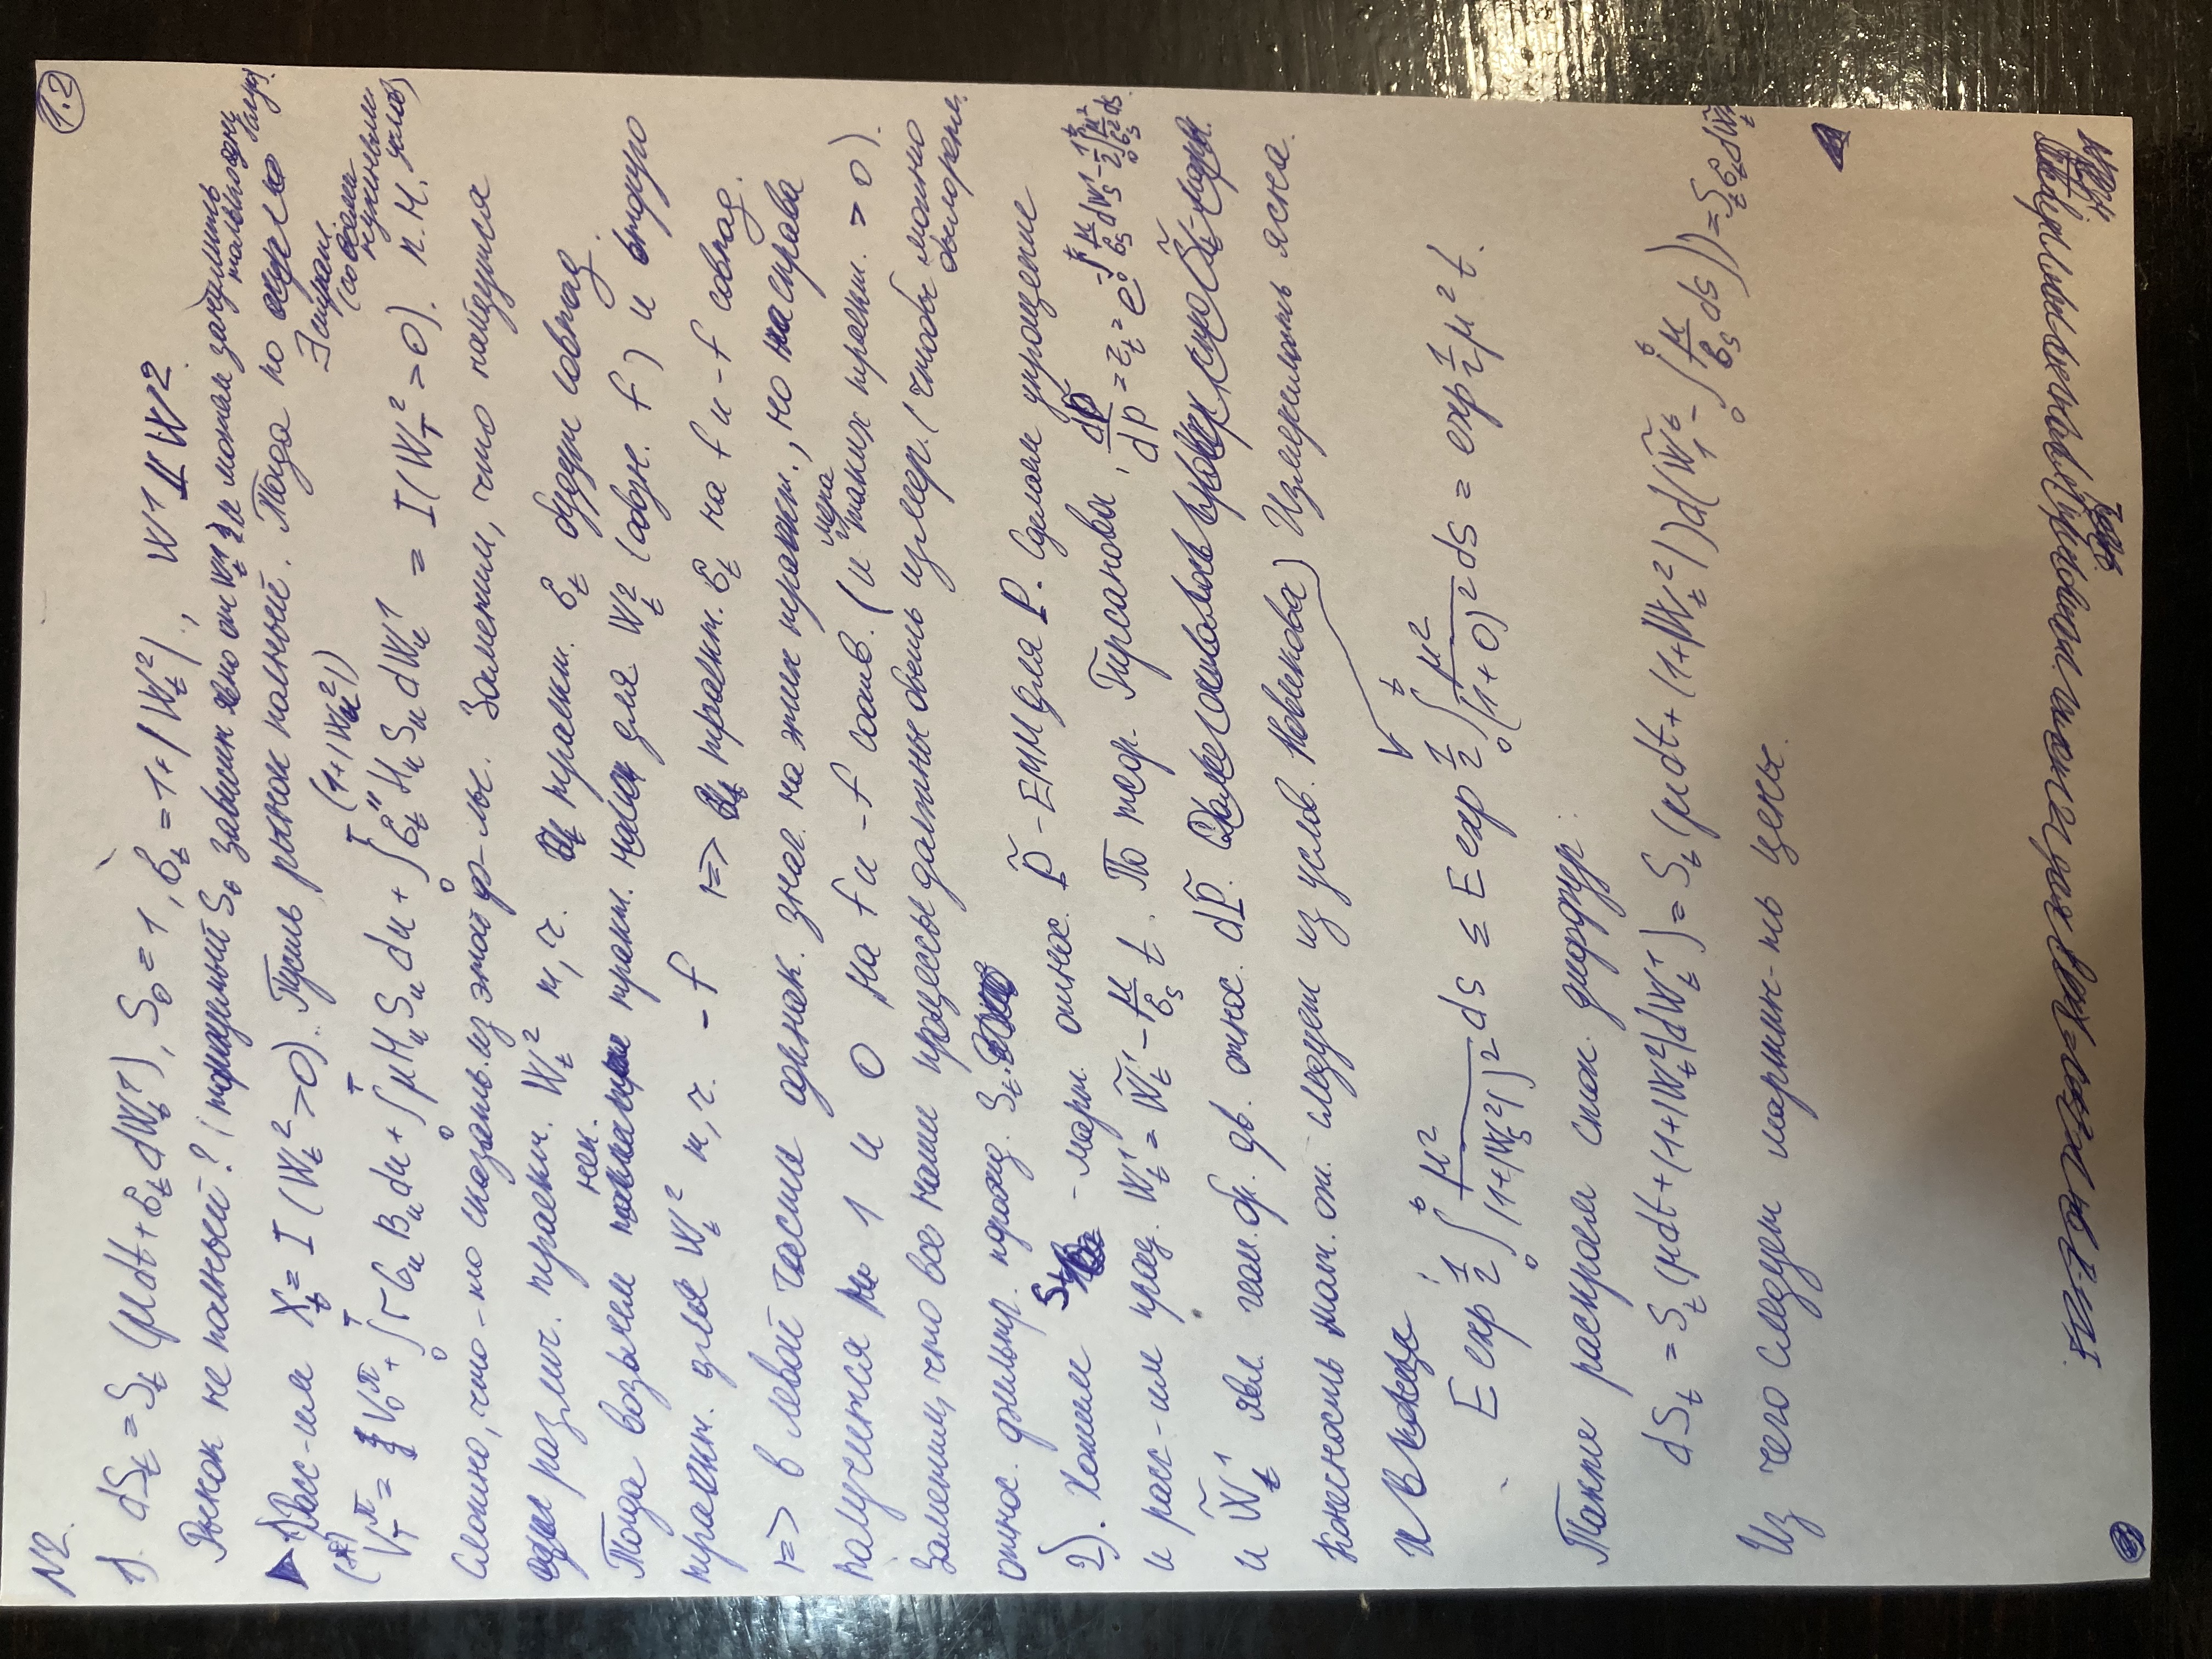 N2.
1.2
1). dS_t = S_t (μdt + σ_t dW_t^1), S_0 = 1, σ_t = 1+|W_t^2|., W^1 ⫫ W^2.
Рынок не полный? (торгуемый S_t зависит явно от W_t^1 и можем занулить только одну
1) Расс-им X_t = I(W_t^2 > 0). Пусть рынок полный. Тогда по
∃ страт. (со всеми нужными услов)
(*) V_T^π = V_0^π + ∫_0^T r G_u B_u du + ∫_0^T μ H_u S_u du + ∫_0^T σ_t H_u S_u dW_u^1 = I(W_T^2 > 0). п.н.
(1+|W_u^2|)
Сложно, что-то сказать из этой ф-лы. Заметим, что найдутся
различ. траект. W_t^2 т,ч. траект. σ_t будут совпад.
Тогда возьмем нек. тракт. для W_t^2 (обозн. f) и вторую
траект. для W_t^2 т,ч. -f => траект. σ_t на f и -f совпад.
=> в левой части одинак. знач. на этих траект., но справа
получится 1 и 0 на f и -f соотв. (и мера таких траект. > 0).
Заметим, что все наши процессы должны быть измер. (чтобы можно
относ. фильтр. порожд. S_t.
2). Хотим S_t - март. относ. P̃ - ЕММ для P. Сделаем упрощение
и расс-им проц. W_t^1 = W̃_t^1 - μ/σ_s t. По теор. Гирсанова, dP̃/dP = z_t = e^{-∫_0^t μ/σ_s dW_s^1 - 1/2 ∫_0^t μ^2/σ_s^2 ds}
и W̃_t^1 явл. геом. бр. дв. относ. dP̃.
Конечность мат. ож. следует из услов. Новикова) Измеримость ясна.
E exp 1/2 ∫_0^t μ^2/(1+|W_s^2|)^2 ds ≤ E exp 1/2 ∫_0^t μ^2/(1+0)^2 ds = exp 1/2 μ^2 t.
Также раскроем стох. диффур:
dS_t = S_t (μdt + (1+|W_t^2|)dW_t^1) = S_t (μdt + (1+|W_t^2|)d(W̃_1^t - ∫_0^t μ/σ_s ds)) = S_t σ_t dW̃_t
Из чего следует мартин-ть цены.